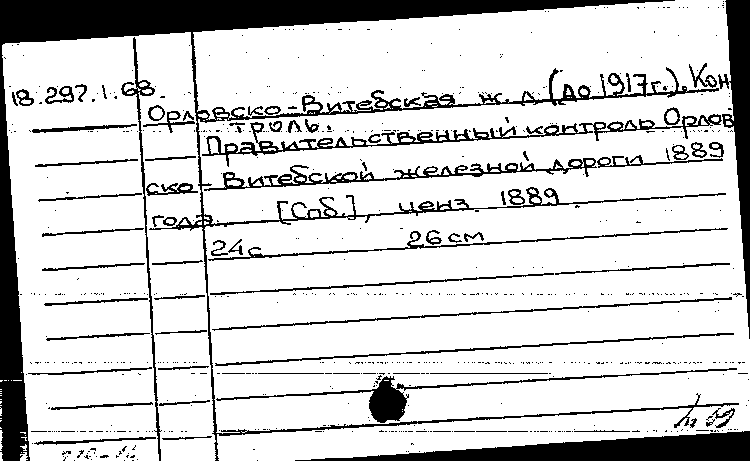 18.297.1.68.
Орловско-Витебская ж. д (до 1917г.). Кон
троль.
Правительственный контроль Орлов
ско-Витебской железной дороги 1889
года. [Спб.], ценз. 1889.
24с 26см